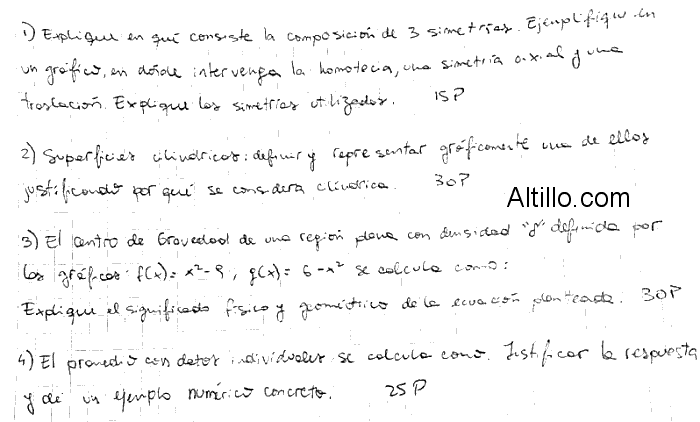 1) Explique en qué consiste la composición de 3 simetrías. Ejemplifique en
un gráfico, en dónde intervenga la homotecia, una simetría axial y una
traslación. Explique las simetrías utilizadas. 15P
2) Superficies cilíndricas: definir y representar gráficamente una de ellas
justificando por qué se considera cilíndrica. 30P
Altillo.com
3) El Centro de Gravedad de una región plana con densidad "δ" definida por
las gráficas f(x)= x²-9, g(x)= 6-x² se calcula como:
Explique el significado físico y geométrico de la ecuación planteada. 30P
4) El promedio con datos individuales se calcula como. Justificar la respuesta
y dé un ejemplo numérico concreto. 25P